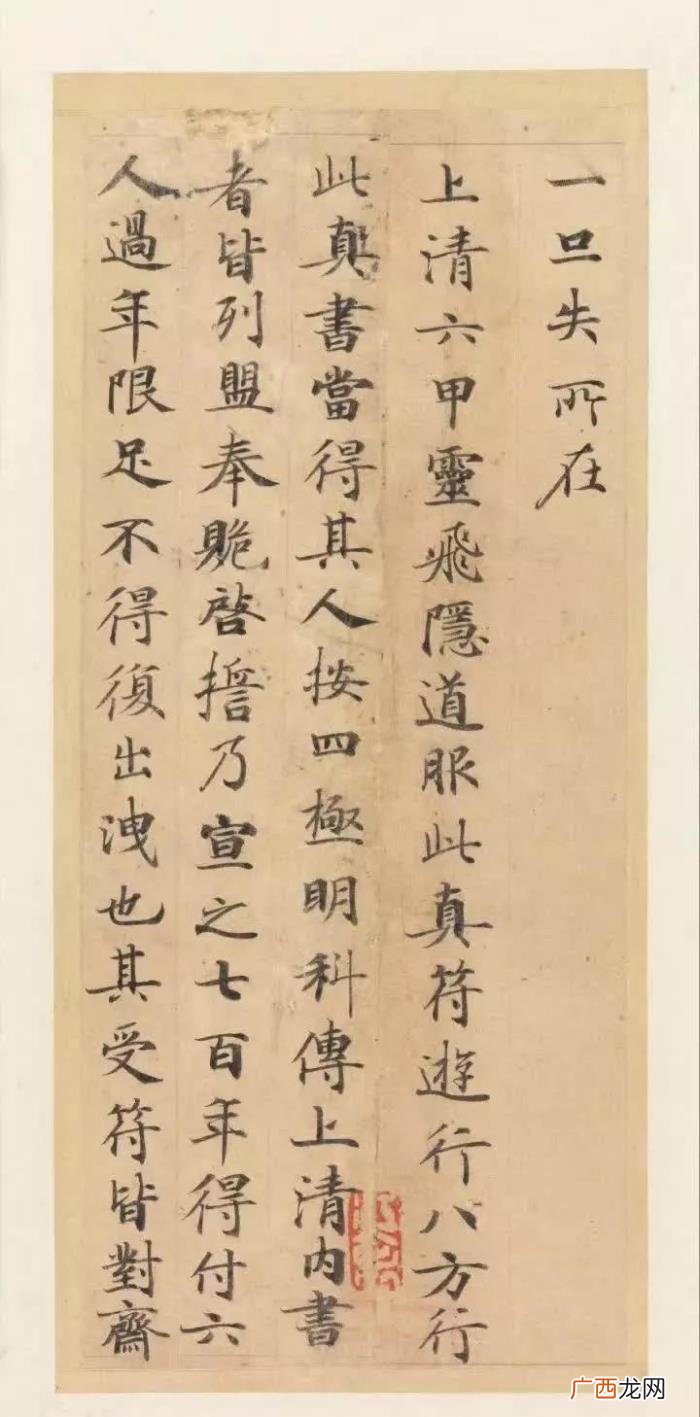 一旦失所在
上清六甲靈飛隱道服此真符遊行八方行
此真書當得其人按四極明科傳上清內書
者皆列盟奉貺啓誓乃宣之七百年得付六
人過年限足不得復出洩也其受符皆對齋
广西龙网